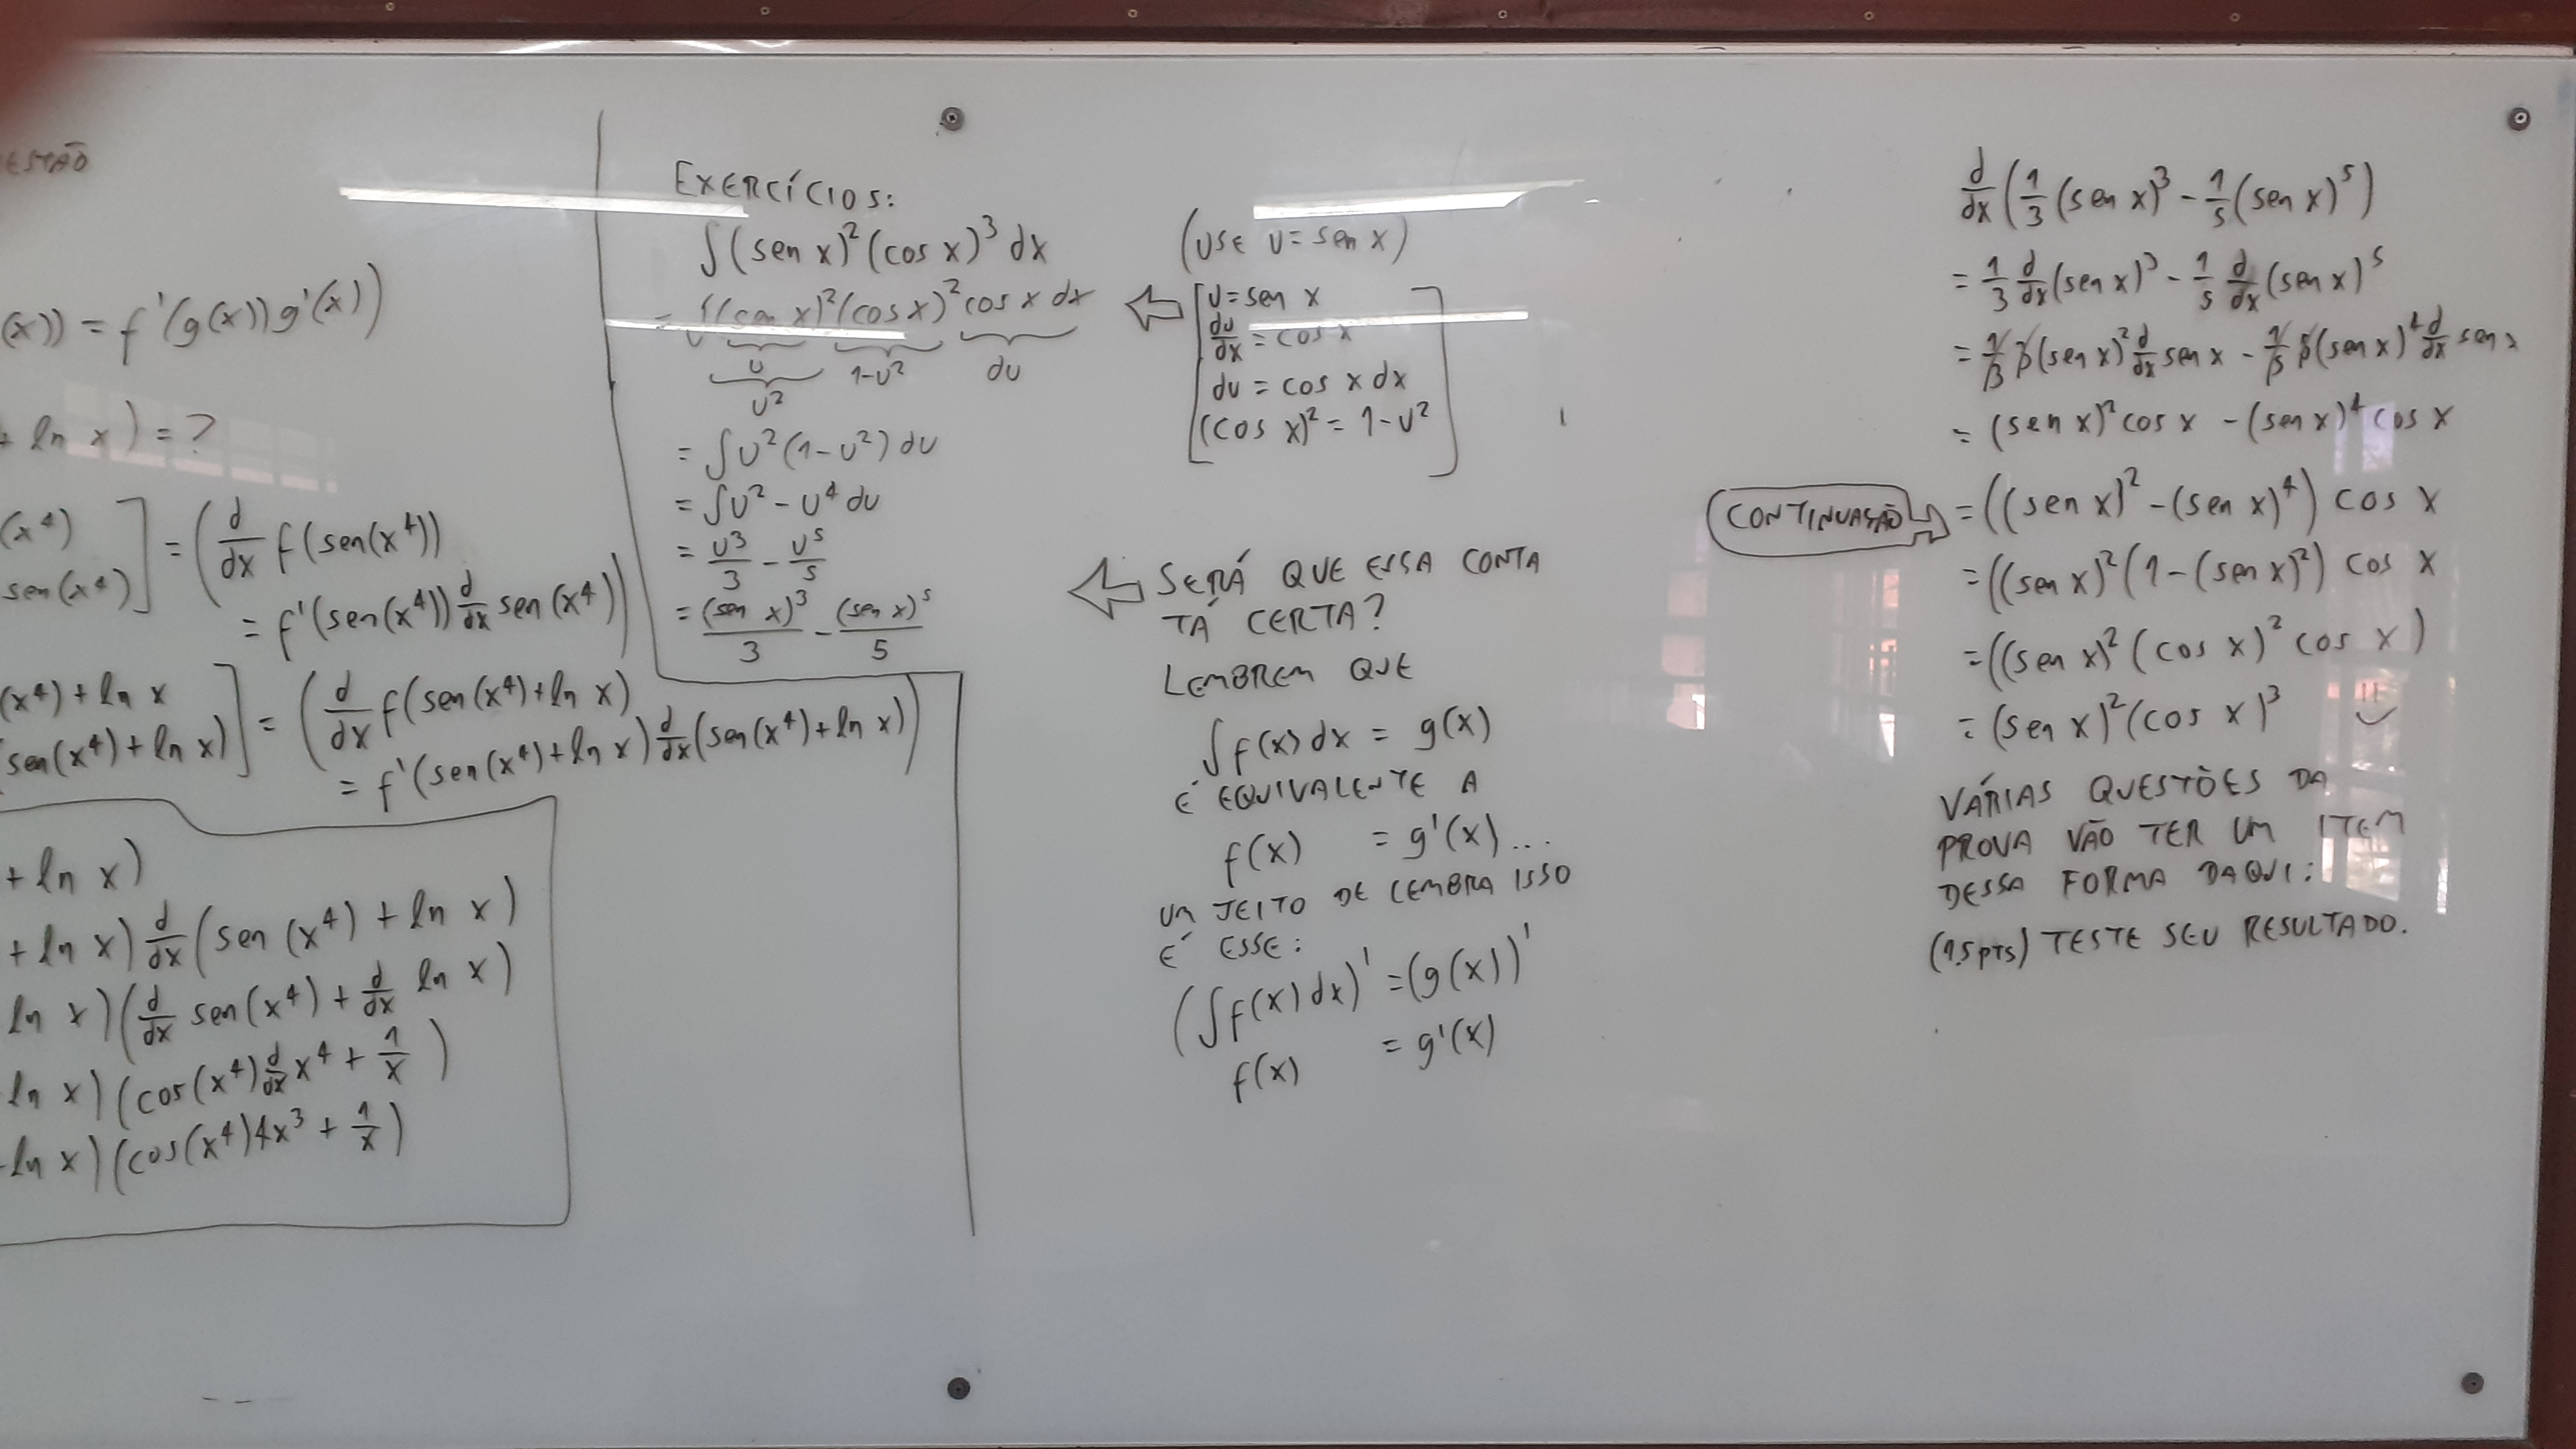 ESTÃO
(x)) = f'(g(x))g'(x))
+ ln x) = ?
(x⁴)
sen(x⁴)] = (d/dx f(sen(x⁴))
= f'(sen(x⁴)) d/dx sen(x⁴))
(x⁴) + ln x
sen(x⁴) + ln x)] = (d/dx f(sen(x⁴) + ln x)
= f'(sen(x⁴) + ln x) d/dx (sen(x⁴) + ln x))
+ ln x)
+ ln x) d/dx (sen (x⁴) + ln x)
ln x) (d/dx sen(x⁴) + d/dx ln x)
ln x) (cos(x⁴) d/dx x⁴ + 1/x)
ln x) (cos(x⁴)4x³ + 1/x)
EXERCÍCIOS:
∫(sen x)²(cos x)³ dx
= ∫(sen x)²(cos x)² cos x dx
u 1-u² du
u²
= ∫u²(1-u²) du
= ∫u² - u⁴ du
= u³/3 - u⁵/5
= (sen x)³/3 - (sen x)⁵/5
(USE u = sen x)
[u = sen x
du/dx = cos x
du = cos x dx
(cos x)² = 1-u²]
SERÁ QUE ESSA CONTA
TÁ CERTA?
LEMBREM QUE
∫f(x) dx = g(x)
É EQUIVALENTE A
f(x) = g'(x)...
UM JEITO DE LEMBRA ISSO
É ESSE:
(∫f(x) dx)' = (g(x))'
f(x) = g'(x)
d/dx (1/3 (sen x)³ - 1/5 (sen x)⁵)
= 1/3 d/dx (sen x)³ - 1/5 d/dx (sen x)⁵
= 1/3 3(sen x)² d/dx sen x - 1/5 5(sen x)⁴ d/dx sen x
= (sen x)² cos x - (sen x)⁴ cos x
CONTINUAÇÃO = ((sen x)² - (sen x)⁴) cos x
= ((sen x)² (1 - (sen x)²) cos x
= ((sen x)² (cos x)² cos x)
= (sen x)² (cos x)³
VÁRIAS QUESTÕES DA
PROVA VÃO TER UM ITEM
DESSA FORMA DAQUI:
(1.5 pts) TESTE SEU RESULTADO.